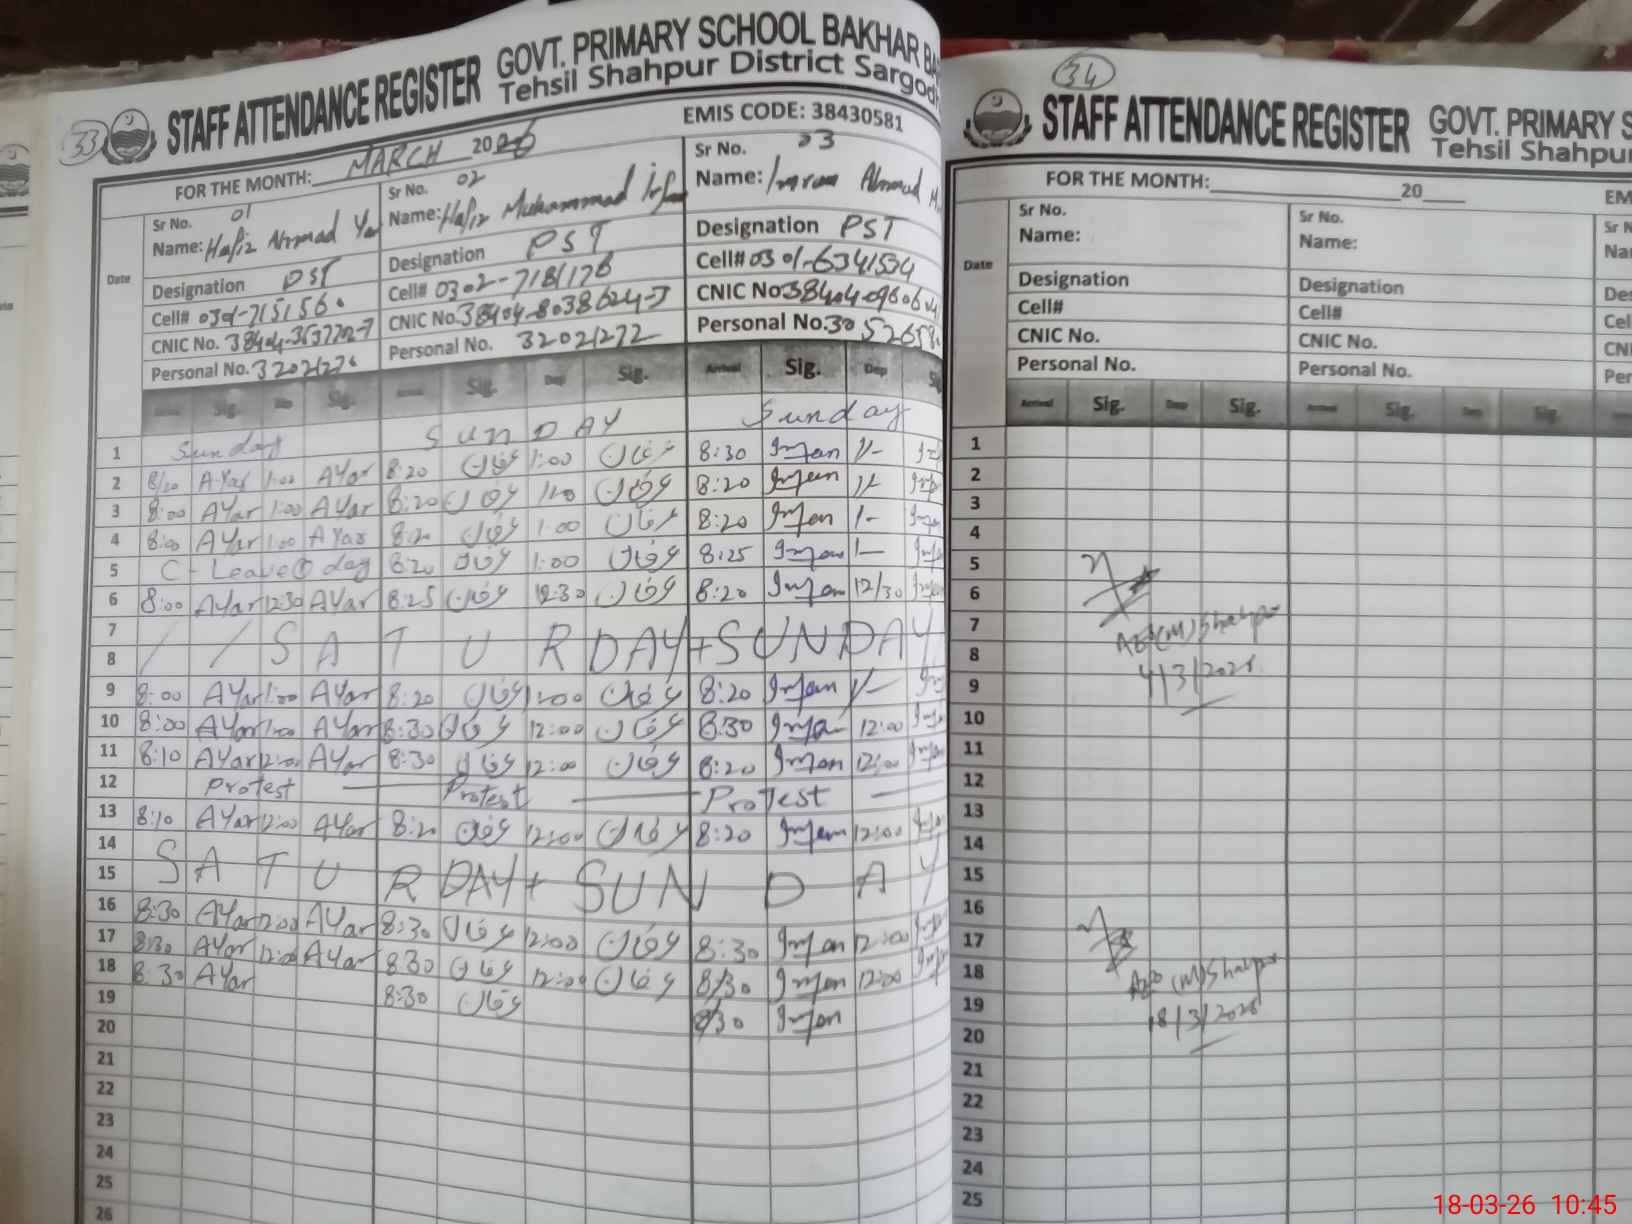 33
STAFF ATTENDANCE REGISTER GOVT. PRIMARY SCHOOL BAKHAR
Tehsil Shahpur District Sargod
EMIS CODE: 38430581
FOR THE MONTH: MARCH 2026
Date
Sr No. 01
Name: Hafiz Ahmad Yar
Designation PST
Cell#
CNIC No.
Personal No.
Sr No. 02
Name: Hafiz Muhammad Irfan
Designation PST
Cell# 0302-7181176
CNIC No. 38404-8038624-
Personal No. 32021272
Sr No. 03
Name: Imran Ahmad
Designation PST
Cell# 0301-6341534
CNIC No.
Personal No. 30
Arrival Sig. Dep Sig. Arrival Sig. Dep Sig. Arrival Sig. Dep
1 Sunday SUNDAY Sunday
2 8:20 A Yar 1:00 A Yar 8:20 عرفان 1:00 عرفان 8:30 1/-
3 8:00 A Yar 1:00 A Yar 8:20 عرفان عرفان 8:20 1/-
4 8:00 A Yar 1:00 A Yar 8:20 عرفان 1:00 عرفان 8:20 1-
5 C-Leave 1 day 8:20 عرفان 1:00 عرفان 8:25 1-
6 8:00 A Yar 12:30 A Yar 8:25 عرفان 12:30 عرفان 8:20 12/30
7
8 SATURDAY+SUNDAY
9 8:00 A Yar 1:00 A Yar 8:20 عرفان 1:00 عرفان 8:20 1/-
10 8:00 A Yar 1:00 A Yar 8:30 عرفان 12:00 عرفان 8:30 12:00
11 8:10 A Yar 12:00 A Yar 8:30 عرفان 12:00 عرفان 8:20 12:00
12 Protest Protest Protest
13 8:10 A Yar 12:00 A Yar 8:20 عرفان 12:00 عرفان 8:20 12:00
14
15 SATURDAY+SUNDAY
16 8:30 A Yar 12:00 A Yar 8:30 عرفان 12:00 عرفان 8:30 12:00
17 8:30 A Yar 12:00 A Yar 8:30 عرفان 12:00 عرفان 8/30 12:00
18 8:30 A Yar 8:30 عرفان 8/30
19
20
21
22
23
24
25
26
34
STAFF ATTENDANCE REGISTER GOVT. PRIMARY S
Tehsil Shahpur
FOR THE MONTH: 20 EM
Date
Sr No.
Name:
Designation
Cell#
CNIC No.
Personal No.
Sr No.
Name:
Designation
Cell#
CNIC No.
Personal No.
Sr N
Na
De
Cel
CN
Per
Arrival Sig. Dep Sig. Arrival Sig. Dep Sig.
1
2
3
4
5
6
7 AEO (M) Shahpur
8
9 4/3/2026
10
11
12
13
14
15
16
17
18 AEO (M) Shahpur
19 18/3/2026
20
21
22
23
24
25
18-03-26 10:45